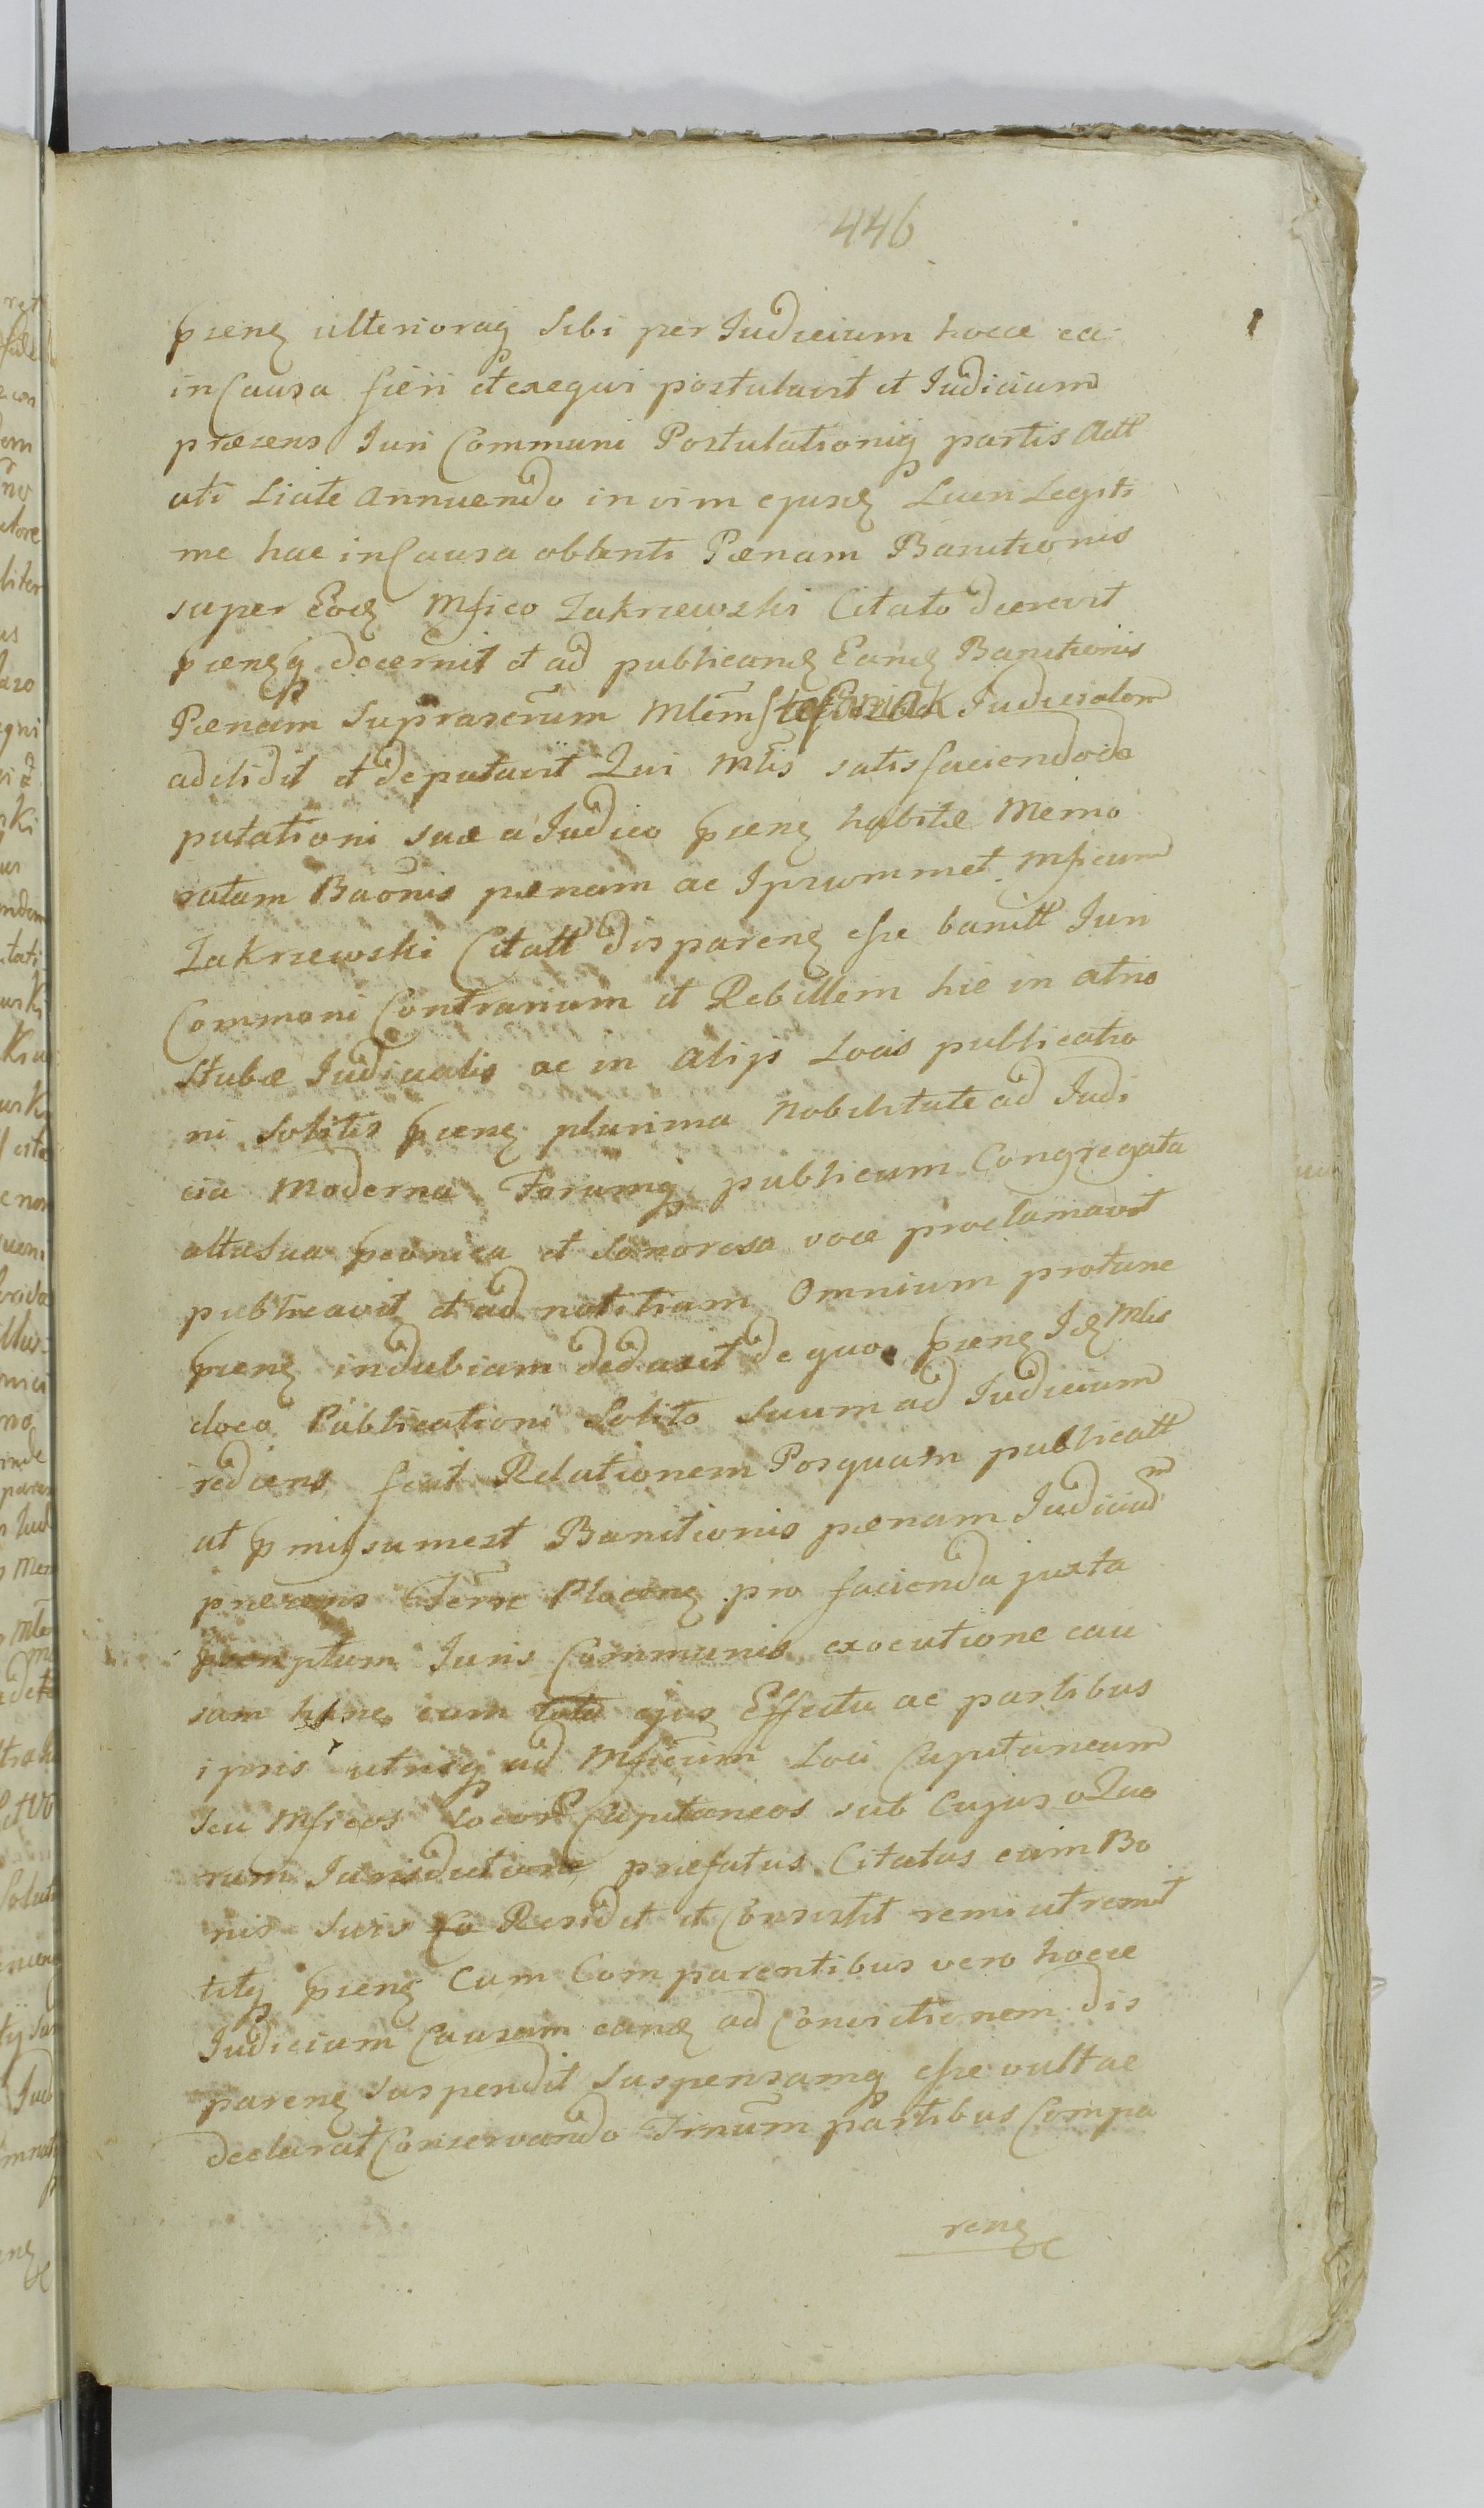 446
pnenꝫ ulterioraqꝫ Sibi per Iudicium hocce ea
in Causa fieri et exequi postulavit et Iudicium
præsens Iuri Communi Postulationiqꝫ partis Actt
uti Licite Annuendo in vim ejusdꝫ Lucri Legiti
me hac in Causa obtenti Pænam Banitionis
super Eodꝫ Mfico Zakrzewski Citato decrevit
pnenqꝫ decernit et ad publicandꝫ Eandꝫ Banitionis
Pænam Suprascrum Mlem Stefaniak Iudicialem
addidit et deputavit Qui Mlis satisfaciendo de
putationi suæ a Iudico pnenꝫ habitæ Memo
ratam Baonis pænam ac Ipsummet Mficum
Zakrzewski Citatt disparenꝫ esse banitt Iuri
Commoni Contrarium et Rebellem hic in atrio
Stubæ Iudicialis ac in alijs Locis publicatio
ni Solitis pnenꝫ plurima Nobilitate ad Iudi
cia Moderna Forumqꝫ publicum Congregata
alta Sua pconica et Sonorosa voce proclamavit
publicavit et ad notitiam Omnium protunc
pnenꝫ indubiam deduxit de quo pnenꝫ Idꝫ Mlis
Loco Publicationi Solito Suum ad Iudicium
rediens fecit Relationem Posquam publicatt
ut pmissum est Banitionis pænam Iudicium
præsens Terrꝫ Plocenꝫ pro facienda juxta
pscriptum Iuris Communis executione cau
sam hanc cum toto ejus Effectu ac partibus
ipsis utrisqꝫ ad Mficum Loci Capitaneum
seu Mficos Locor Capitaneos sub Cujus v Quo
rum Iurisdictione præfatus Citatus cum Bo
nis Suis Residet et Consistit remisit remit
titqꝫ pnenꝫ Cum Comparentibus vero hocce
Iudicium Causam eandꝫ ad Convictionem dis
parenꝫ suspendit Suspensamqꝫ esse vult ac
declarat Conservando Trnum partibus Compa
renꝫ